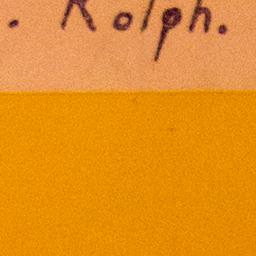 . Rolph.